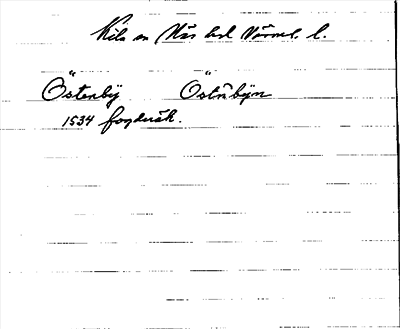 Kila sn Näs hd Värml. l.
Östenby Östbyn
1534 fogdräk.